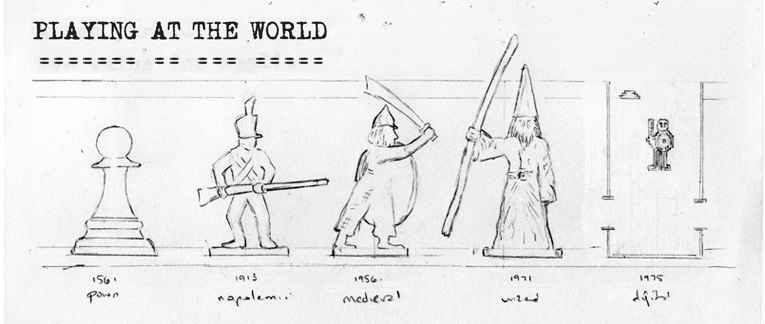 PLAYING AT THE WORLD
======= == === =====
1561 1913 1956. 1971 1975
pawn napoleonic medieval wizard digital